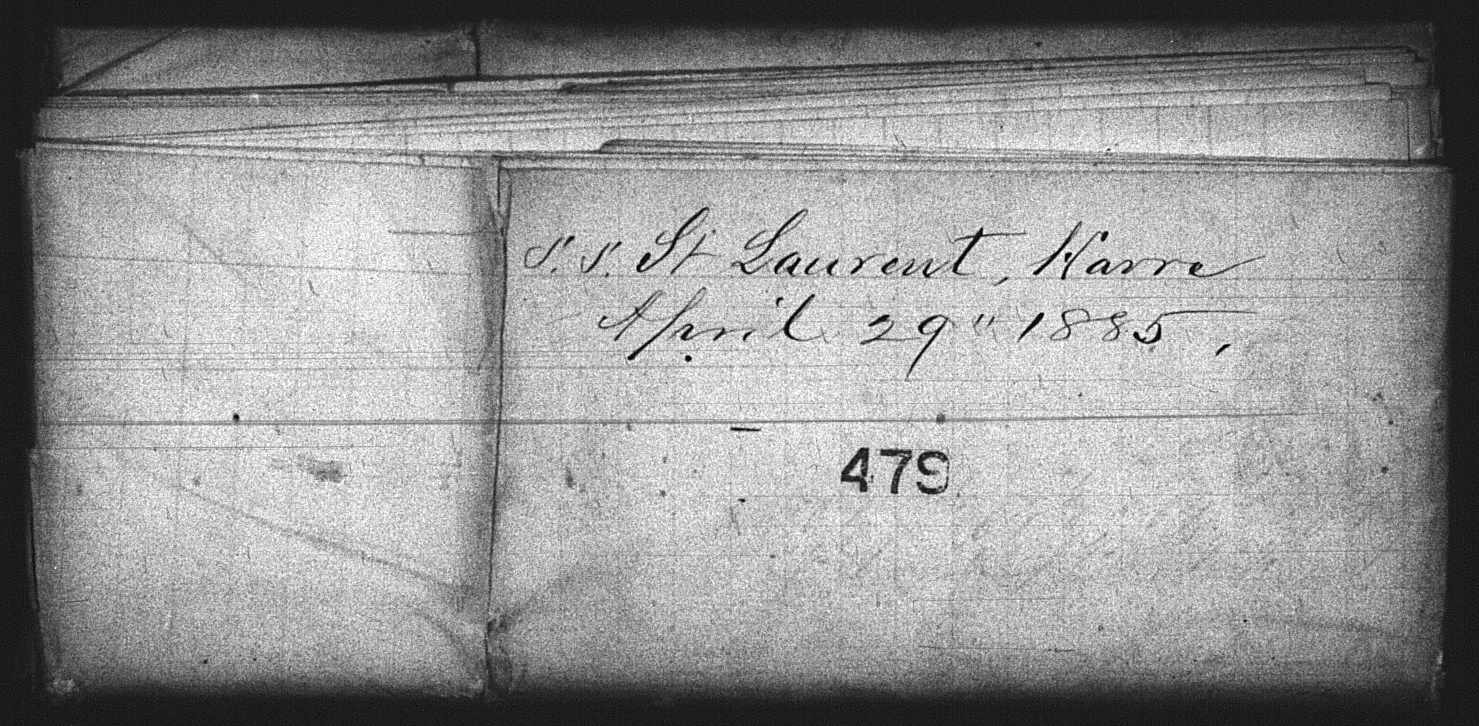 S. S. St Laurent, Havre
April 29" 1885,
479